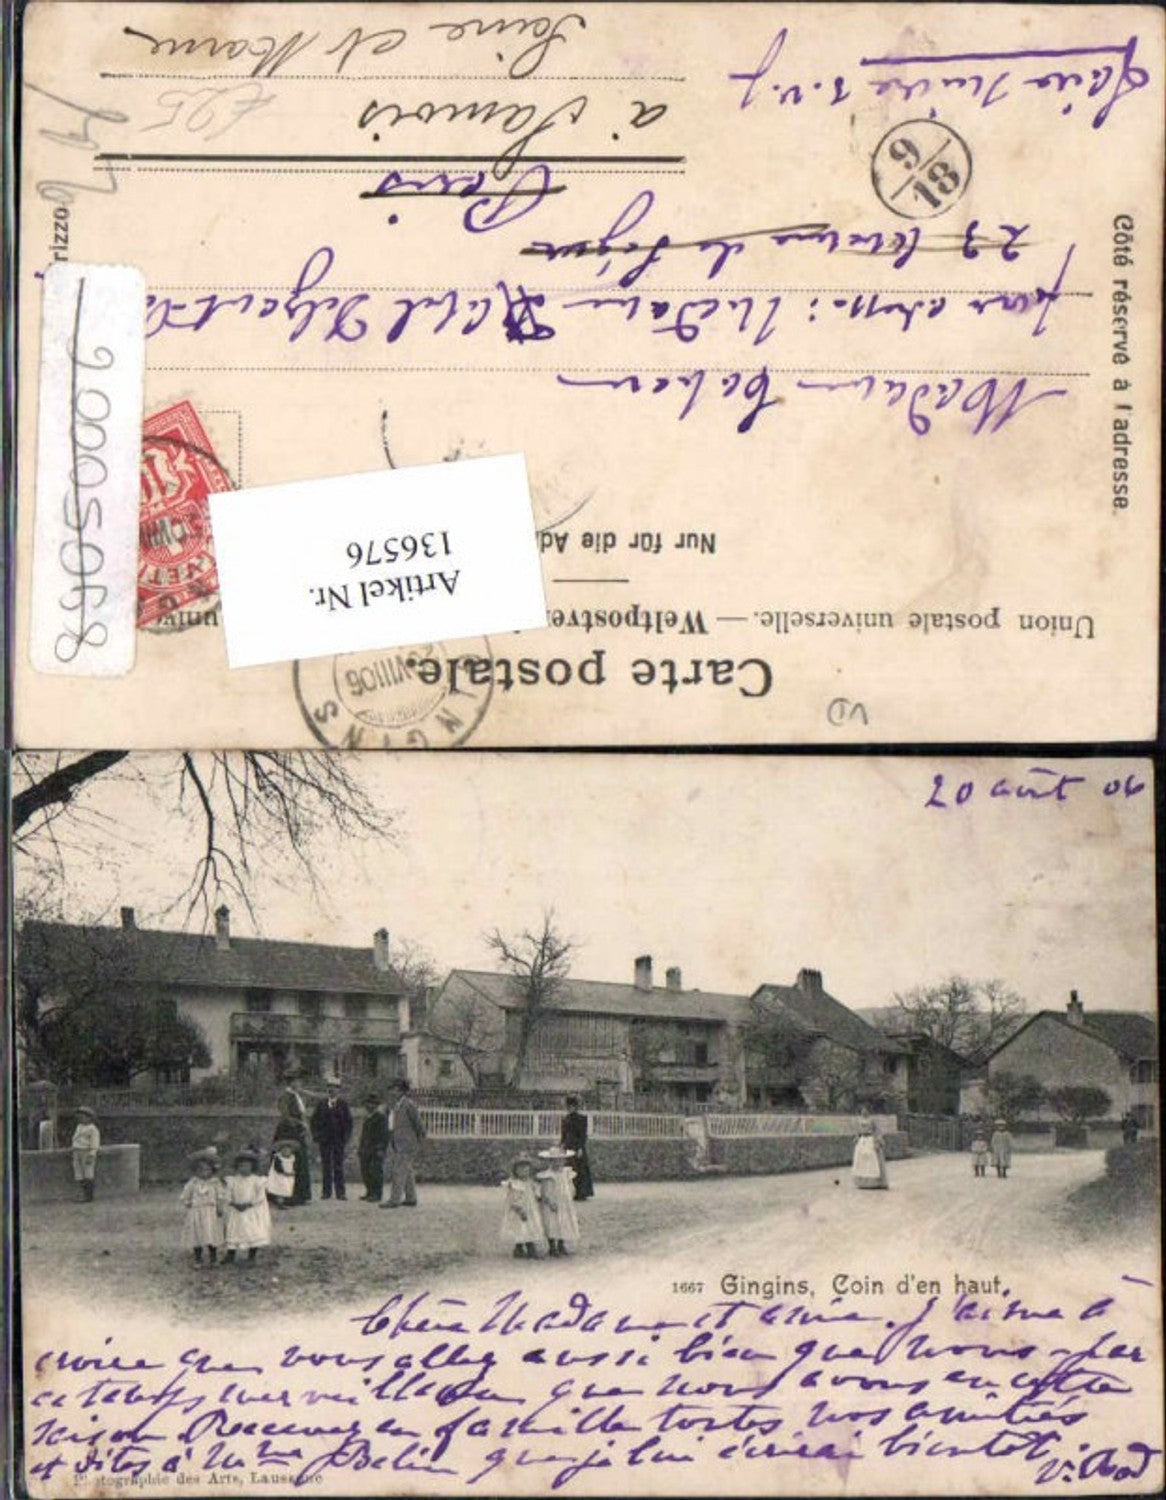 Carte postale.
Union postale universelle. — Weltpostver
Nur für die Ad
Côté réservé à l'adresse.
Artikel Nr.
136576
900050658
VD
GINGINS
VIII 06
Madame
23
Paris
à Samois
Seine et Marne
18
9
rizzo
20 août 06
1667 Gingins, Coin d'en haut.
Chère Madame et amie. J'aime à
croire que vous allez aussi bien que nous par
ce temps merveilleux que nous avons en cette
saison Recevez en famille toutes nos amitiés
et dites à Mme que je lui écrirai bientôt.
Photographie des Arts, Lausanne